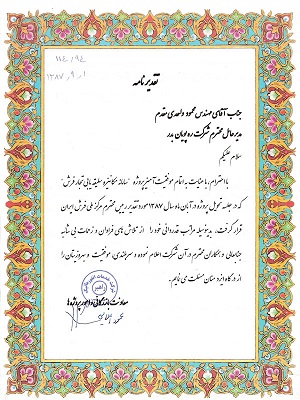 ۱۱۴/۹۴
۱۳۸۷/۹/۱
تقدیرنامه
جناب آقای مهندس محمود واحدی مقدم
مدیرعامل محترم شرکت ره پویان بدر
سلام علیکم
با احترام، با عنایت به اتمام موفقیت آمیز پروژه "سامانه مکانیزه سلیقه یابی تجار فرش"
که در جلسه تحویل پروژه در آبان ماه سال ۱۳۸۷ مورد تقدیر رییس محترم مرکز ملی فرش ایران
قرار گرفت، بدینوسیله مراتب قدردانی خود را از تلاش های فراوان و زحمات بی شائبه
جنابعالی و همکاران محترم در آن شرکت اعلام نموده و سربلندی، موفقیت و بهروزیتان را
از درگاه ایزد منان مسئلت می نمایم.
معاونت بازرگانی و امور پروژه ها